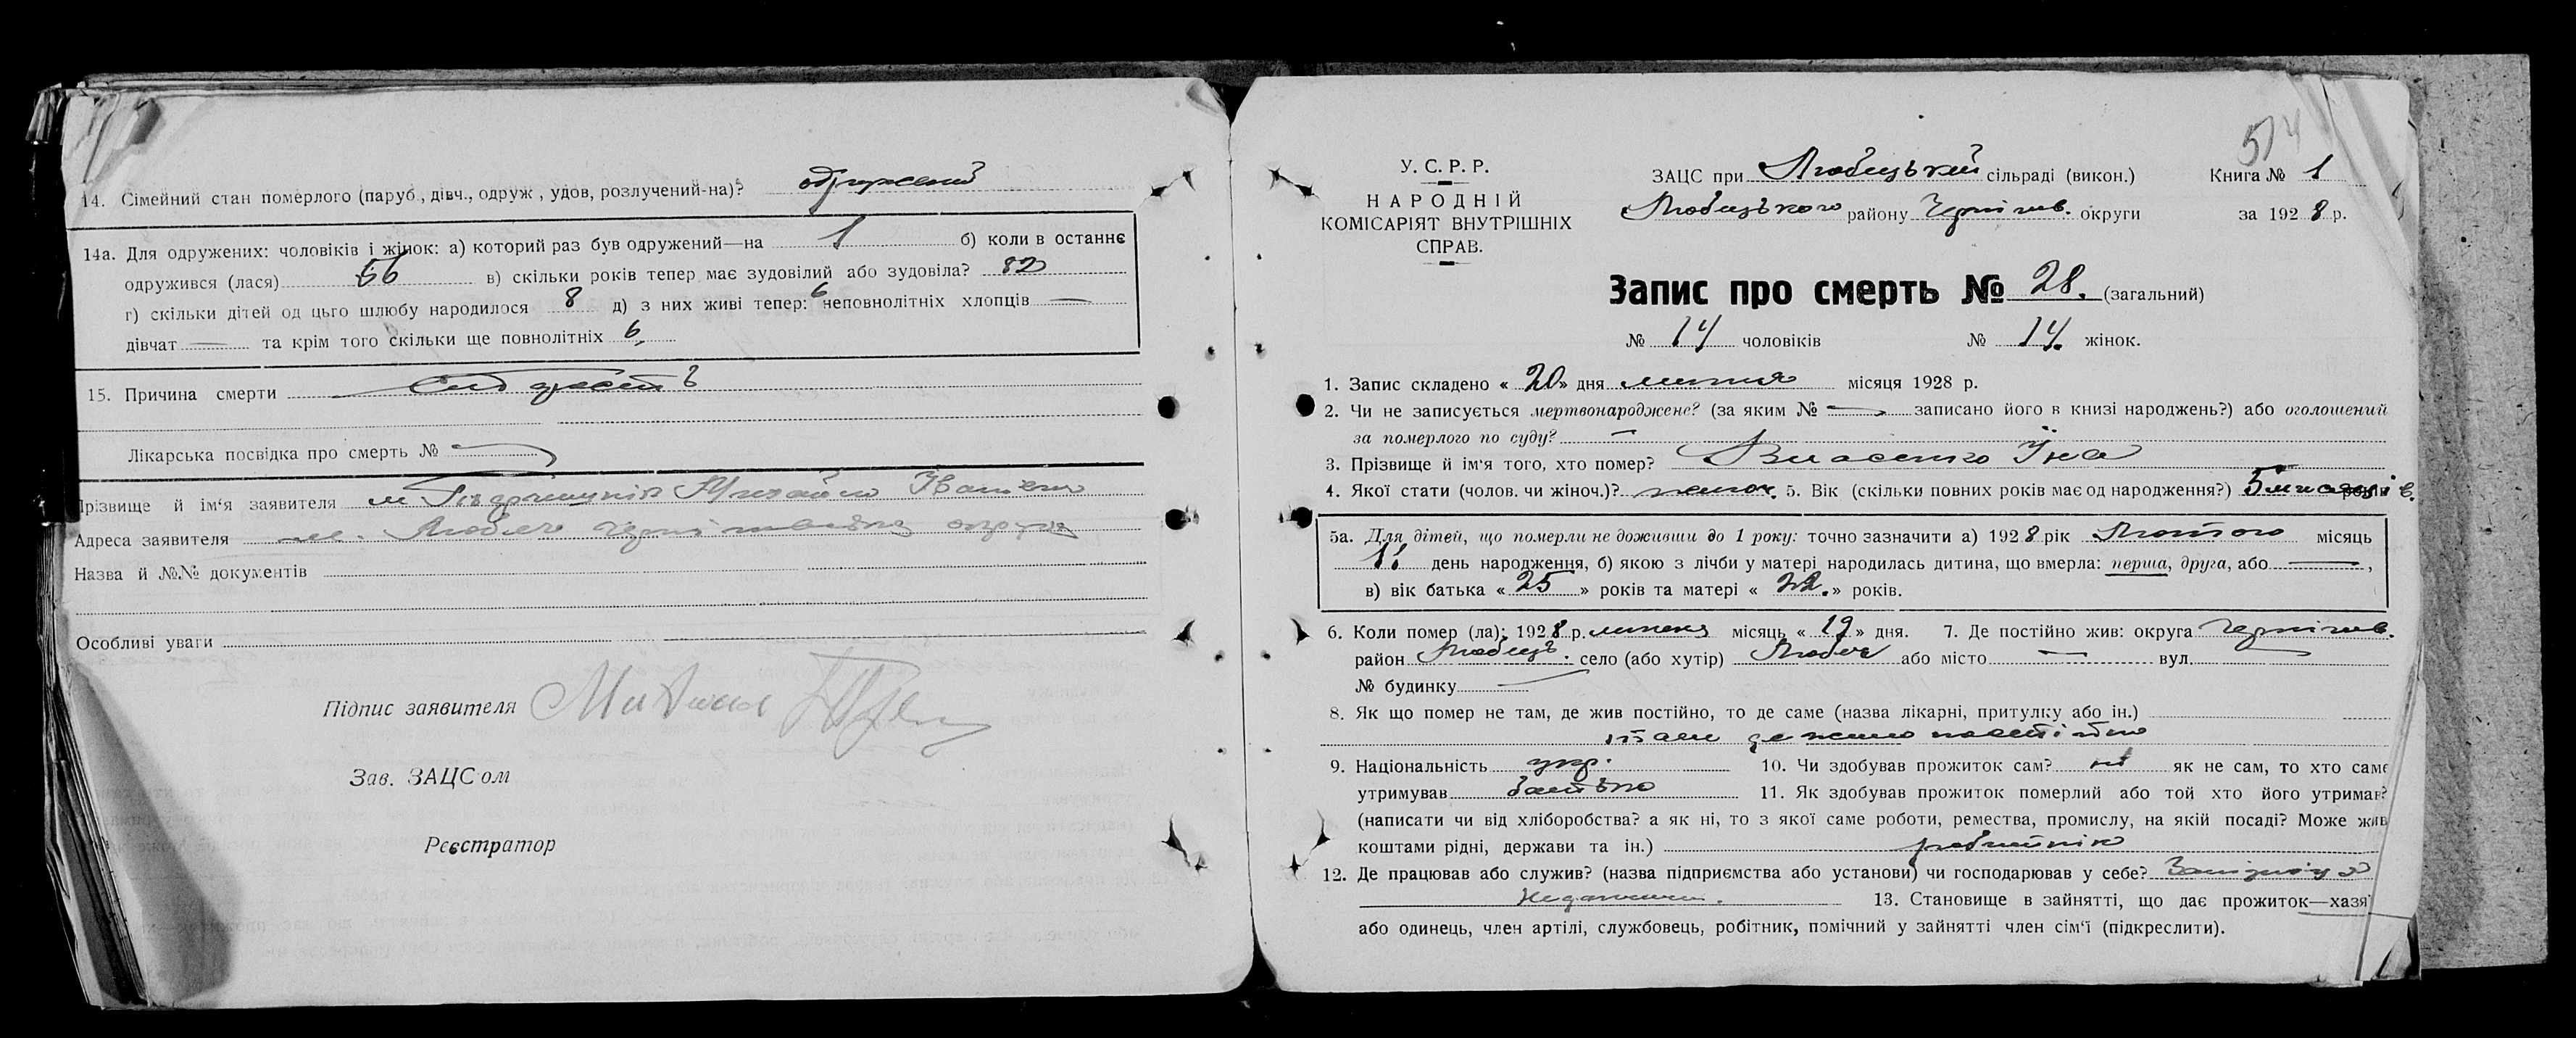 14. Сімейний стан померлого (паруб., дівч., одруж., удов, розлучений-на)? одружений
14а. Для одружених: чоловіків і жінок: а) которий раз був одружений—на 1 б) коли в останнє
одружився (лася) 56 в) скільки років тепер має зудовілий або зудовіла? 82
г) скільки дітей од цього шлюбу народилося 8 д) з них живі тепер: 6 неповнолітніх хлопців —
дівчат — та крім того скільки ще повнолітніх 6,
15. Причина смерти
Лікарська посвідка про смерть № —
Прізвище й ім'я заявителя Михайло
Адреса заявителя м. Любеч округи
Назва й №№ документів
Особливі уваги
Підпис заявителя
Зав. ЗАЦСом
Реєстратор
514
У.С.Р.Р.
НАРОДНІЙ
КОМІСАРІЯТ ВНУТРІШНІХ
СПРАВ.
ЗАЦС при Любецькій сільраді (викон.) Книга № 1
Любецького району Чернігів. округи за 1928 р.
Запис про смерть № 28. (загальний)
№ 14 чоловіків № 14. жінок.
1. Запис складено « 20 » дня липня місяця 1928 р.
2. Чи не записується мертвонароджене? (за яким № — записано його в книзі народжень?) або оголошений
за померлого по суду? —
3. Прізвище й ім'я того, хто помер? Власенко Їна
4. Якої стати (чолов. чи жіноч.)? жіноч. 5. Вік (скільки повних років має од народження?) 5 місяців.
5а. Для дітей, що померли не доживши до 1 року: точно зазначити а) 1928 рік Лютого місяць
11 день народження, б) якою з лічби у матері народилась дитина, що вмерла: перша, друга, або —,
в) вік батька « 25 » років та матері « 22. » років.
6. Коли помер (ла): 1928 р. липня місяць « 19 » дня. 7. Де постійно жив: округа Чернігів.
район Любець. село (або хутір) Любеч або місто — вул. —
№ будинку —
8. Як що помер не там, де жив постійно, то де саме (назва лікарні, притулку або ін.)
там де жило постійно
9. Національність укр. 10. Чи здобував прожиток сам? ні як не сам, то хто саме
утримував батько 11. Як здобував прожиток померлий або той хто його утримав?
(написати чи від хліборобства? а як ні, то з якої саме роботи, ремества, промислу, на якій посаді? Може жив
коштами рідні, держави та ін.) робітник
12. Де працював або служив? (назва підприємства або установи) чи господарював у себе?
13. Становище в зайнятті, що дає прожиток—хазя
або одинець, член артілі, службовець, робітник, помічний у зайнятті член сім'ї (підкреслити).